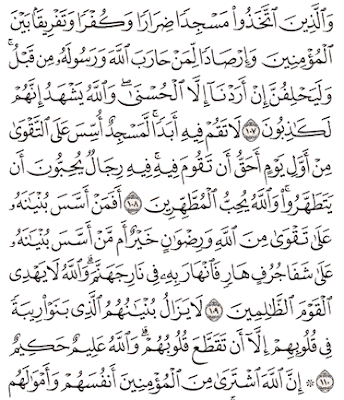 وَٱلَّذِينَ ٱتَّخَذُوا۟ مَسْجِدًا ضِرَارًا وَكُفْرًا وَتَفْرِيقًۢا بَيْنَ
ٱلْمُؤْمِنِينَ وَإِرْصَادًا لِّمَنْ حَارَبَ ٱللَّهَ وَرَسُولَهُۥ مِن قَبْلُ ۚ
وَلَيَحْلِفُنَّ إِنْ أَرَدْنَآ إِلَّا ٱلْحُسْنَىٰ ۖ وَٱللَّهُ يَشْهَدُ إِنَّهُمْ
لَكَـٰذِبُونَ ١٠٧ لَا تَقُمْ فِيهِ أَبَدًا ۚ لَّمَسْجِدٌ أُسِّسَ عَلَى ٱلتَّقْوَىٰ
مِنْ أَوَّلِ يَوْمٍ أَحَقُّ أَن تَقُومَ فِيهِ ۚ فِيهِ رِجَالٌ يُحِبُّونَ أَن
يَتَطَهَّرُوا۟ ۚ وَٱللَّهُ يُحِبُّ ٱلْمُطَّهِّرِينَ ١٠٨ أَفَمَنْ أَسَّسَ بُنْيَـٰنَهُۥ
عَلَىٰ تَقْوَىٰ مِنَ ٱللَّهِ وَرِضْوَٰنٍ خَيْرٌ أَم مَّنْ أَسَّسَ بُنْيَـٰنَهُۥ
عَلَىٰ شَفَا جُرُفٍ هَارٍ فَٱنْهَارَ بِهِۦ فِى نَارِ جَهَنَّمَ ۗ وَٱللَّهُ لَا يَهْدِى
ٱلْقَوْمَ ٱلظَّـٰلِمِينَ ١٠٩ لَا يَزَالُ بُنْيَـٰنُهُمُ ٱلَّذِى بَنَوْا۟ رِيبَةً
فِى قُلُوبِهِمْ إِلَّآ أَن تَقَطَّعَ قُلُوبُهُمْ ۗ وَٱللَّهُ عَلِيمٌ حَكِيمٌ
١١٠ ۞ إِنَّ ٱللَّهَ ٱشْتَرَىٰ مِنَ ٱلْمُؤْمِنِينَ أَنفُسَهُمْ وَأَمْوَٰلَهُم